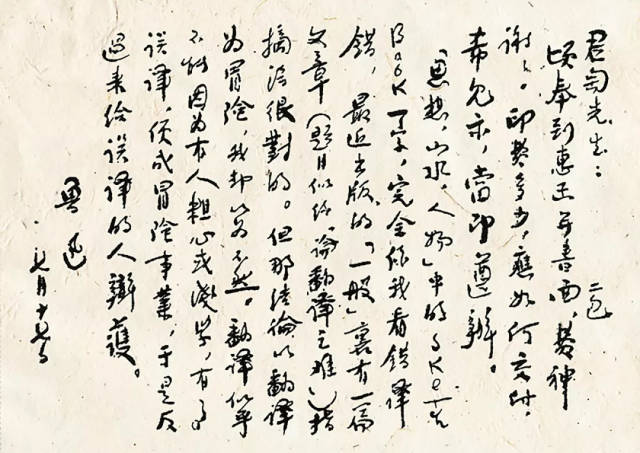 君匋先生：
頃奉到惠函并書面二包，費神
謝謝。印費多少，應如何交付，
希見示，當即遵辦。
「思想，山水，人物」中的 Sketch
Book 一字，完全係我看錯譯
錯，最近出版的「一般」裏有一篇
文章（題目似係「論翻譯之難」）指
摘得很對的。但那結論以翻譯
為冒險，我却以為不然。翻譯似乎
不能因為有人粗心或淺學，有了
誤譯，便成冒險事業，于是反
過来給誤譯的人辯護。
魯迅
七月十七日